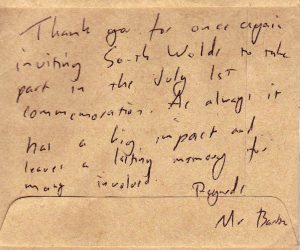 Thank you for once again
inviting South Wolds to take
part in the July 1st
commemoration. As always it
has a big impact and
leaves a lasting memory for
many involved.
Regards
Mr